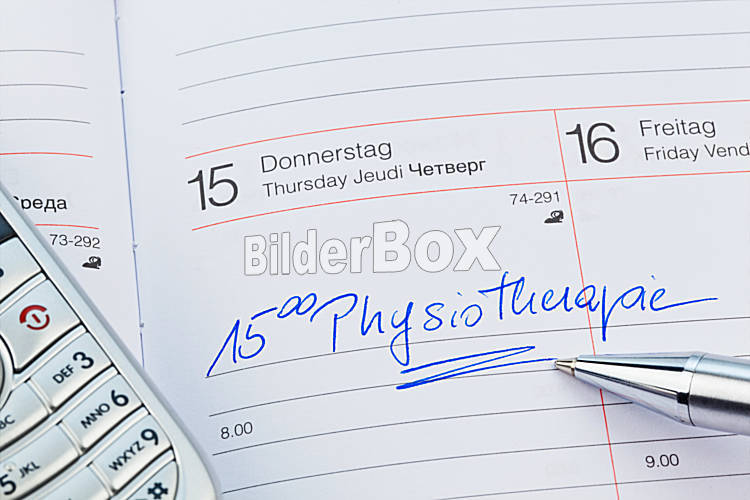 15 Donnerstag
Thursday Jeudi Четверг
16 Freitag
Friday Vend
Среда
74-291
73-292
BilderBox
15 00 Physiotherapie
8.00
9.00
DEF 3
MNO 6
WXY 9
ABC
5 JKL
#